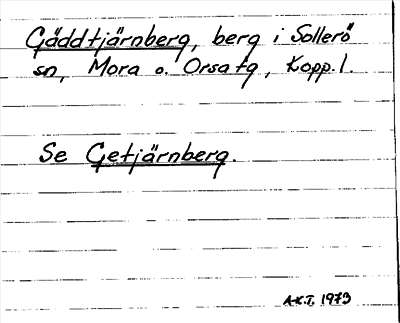 Gäddtjärnberg, berg i Sollerö
sn, Mora o. Orsa tg, Kopp. l.
Se Getjärnberg.
A.K.T. 1973